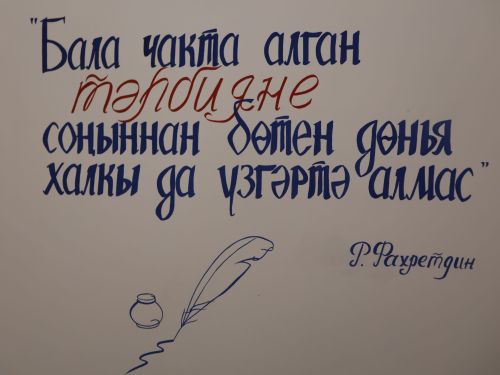 "Бала чакта алган
тәрбияне
соңыннан бөтен дөнья
халкы да үзгәртә алмас"
Р. Фахретдин